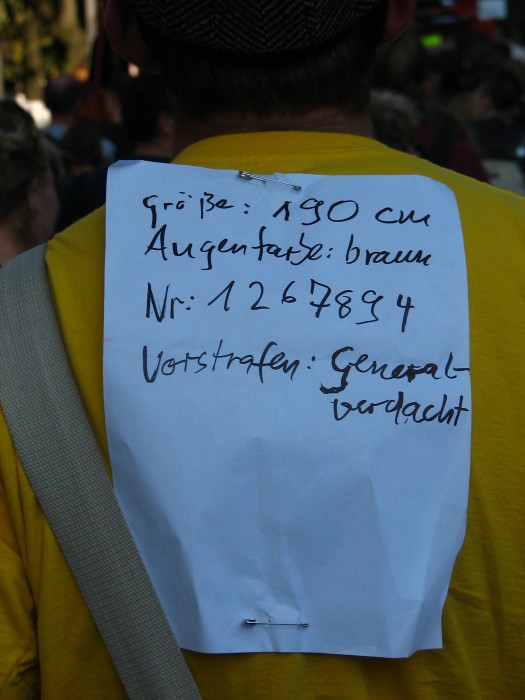 Größe: 190 cm
Augenfarbe: braun
Nr: 1267894
Vorstrafen: General-
verdacht